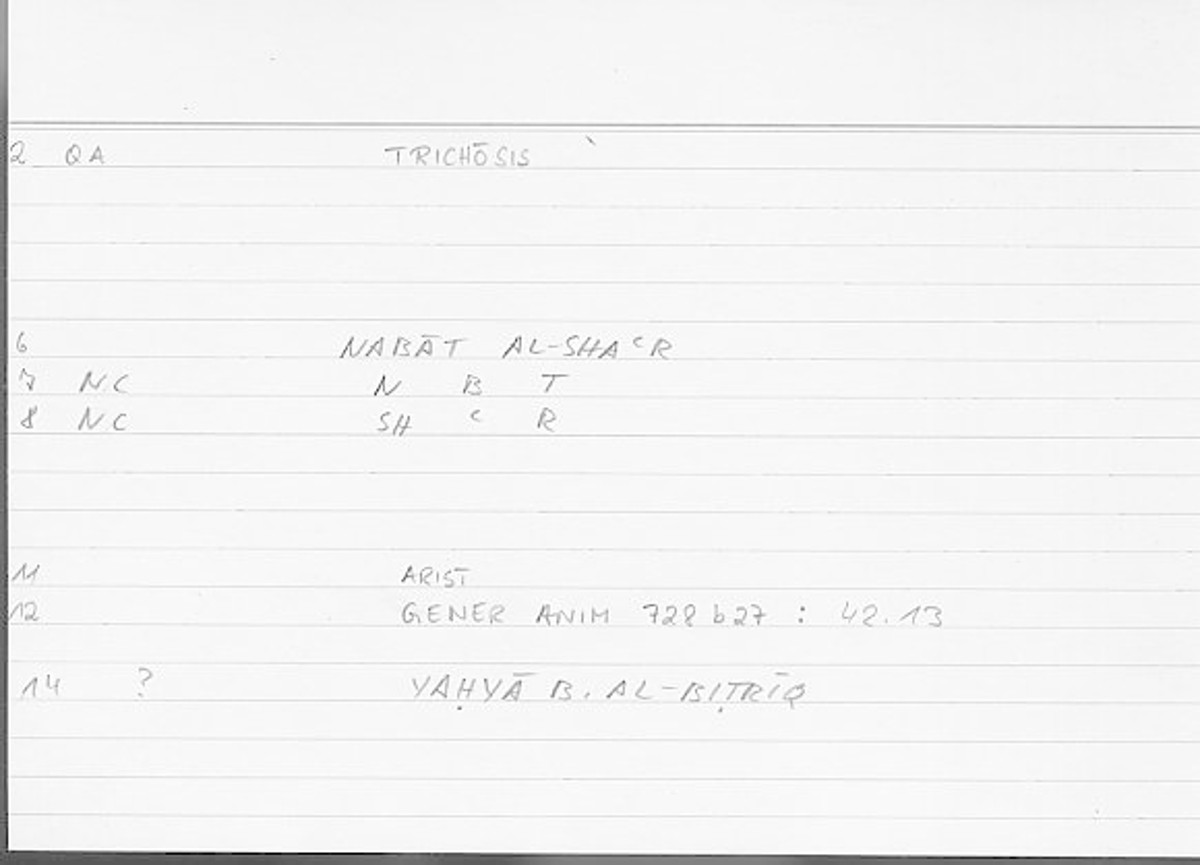 2 QA TRICHŌSIS
6 NABĀT AL-SHAᶜR
7 NC N B T
8 NC SH ᶜ R
11 ARIST
12 GENER ANIM 728 b27 : 42.13
14 ? YAḤYĀ B. AL-BIṬRĪQ